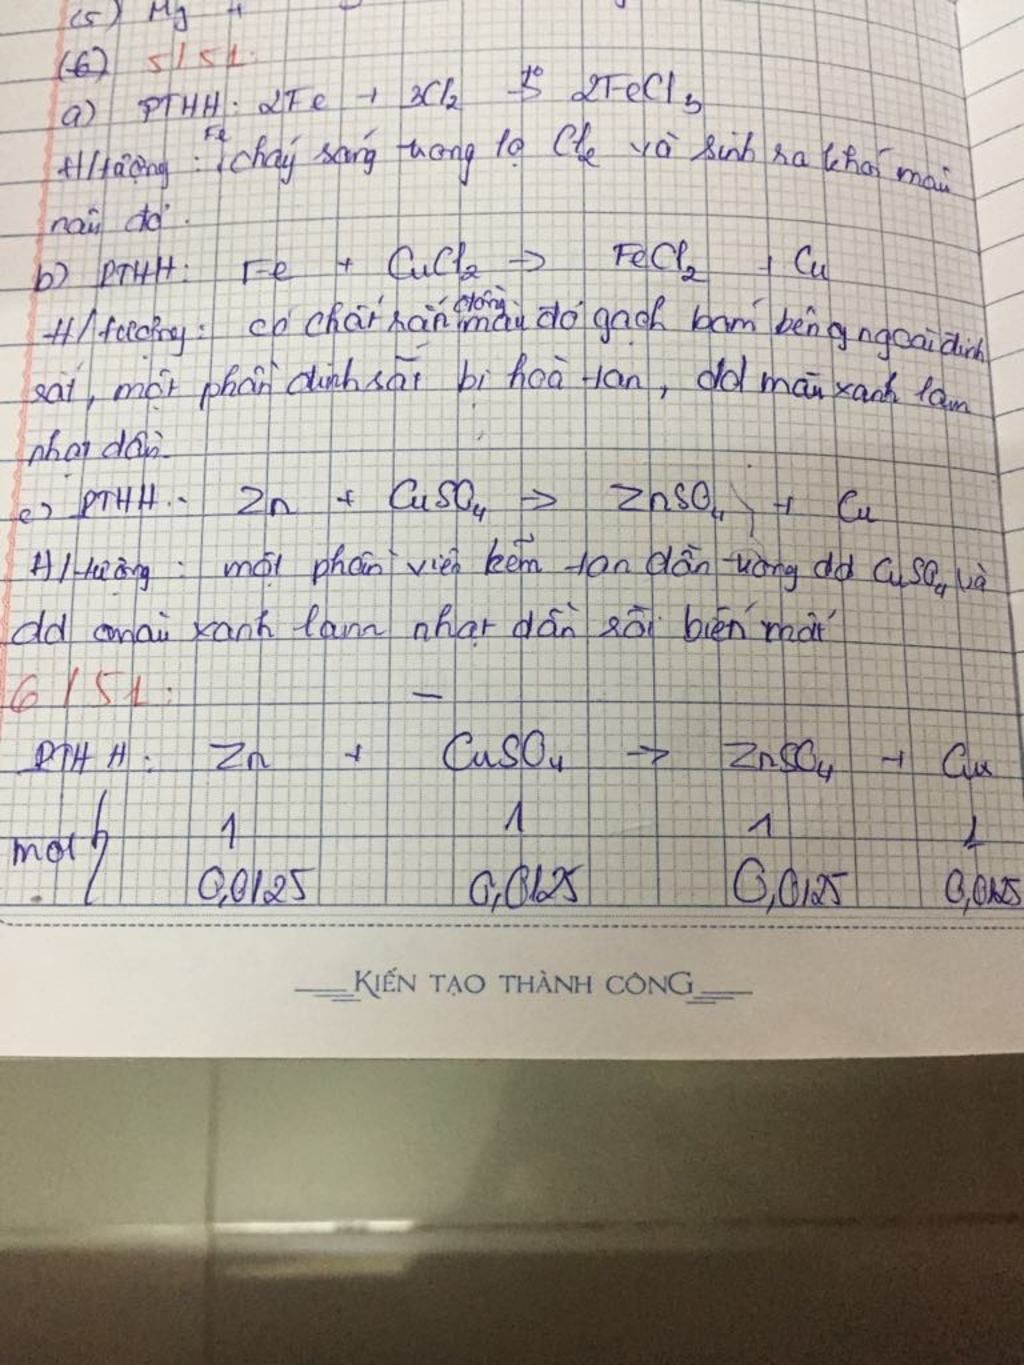 (5) Mg +
(6) 5/51:
a) PTHH: 2Fe + 3Cl2 t°→ 2FeCl3
H/tượng: Fe cháy sáng trong lọ Cl2 và sinh ra khói màu
nâu đỏ.
b) PTHH: Fe + CuCl2 → FeCl2 + Cu
H/tượng: có chất rắn đồng màu đỏ gạch bám bên ngoài đinh
sắt, một phần đinh sắt bị hoà tan, dd màu xanh lam
nhạt dần.
c) PTHH: Zn + CuSO4 → ZnSO4 + Cu
H/tượng: một phần viên kẽm tan dần trong dd CuSO4 và
dd màu xanh lam nhạt dần rồi biến mất
6/51:
PTHH: Zn + CuSO4 → ZnSO4 + Cu
mol 1 1 1 1
0,0125 0,0125 0,0125 0,0125
KIẾN TẠO THÀNH CÔNG